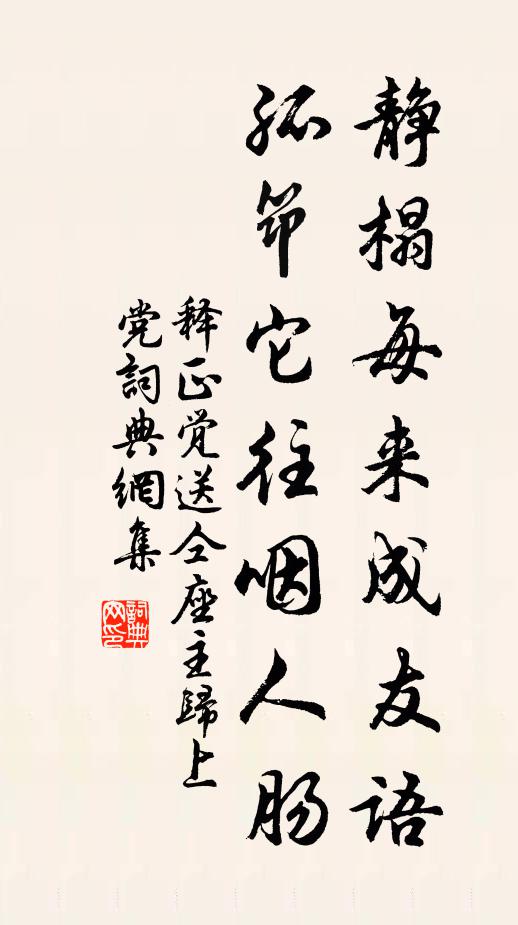 静榻每来成友语
孤筇它往咽人肠
释正觉送仝座主歸上
党詞典網集
詞典网印